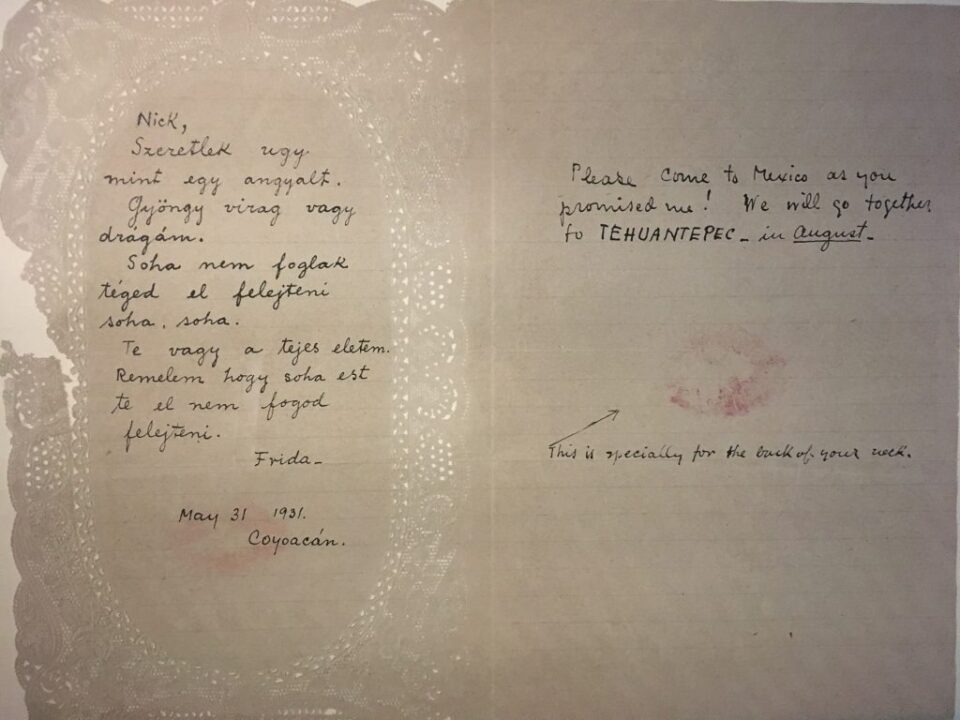 Nick,
Szeretlek ugy
mint egy angyalt.
Gyöngy virag vagy
drágám.
Soha nem foglak
téged el felejteni
soha, soha.
Te vagy a tejes eletem.
Remelem hogy soha est
te el nem fogod
felejteni.
Frida_
May 31 1931.
Coyoacán.
Please come to Mexico as you
promised me! We will go together
to TEHUANTEPEC_ in August_
This is specially for the back of your neck.